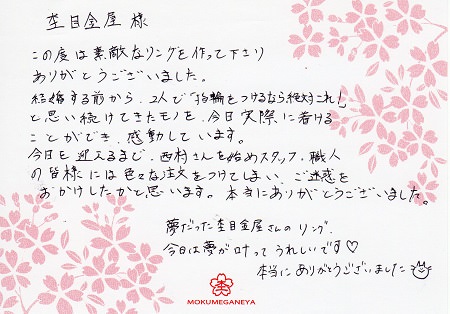 杢目金屋 様
この度は素敵なリングを作って下さり
ありがとうございました。
結婚する前から、2人で「指輪をつけるなら絶対これ!」
と思い続けてきたモノを、今日実際に着ける
ことができ、感動しています。
今日を迎えるまで、西村さんを始めスタッフ、職人
の皆様には色々な注文をつけてしまい、ご迷惑を
おかけしたかと思います。本当にありがとうございました。
夢だった杢目金屋さんのリング、
今日は夢が叶ってうれしいです♡
本当にありがとうございました
MOKUMEGANEYA